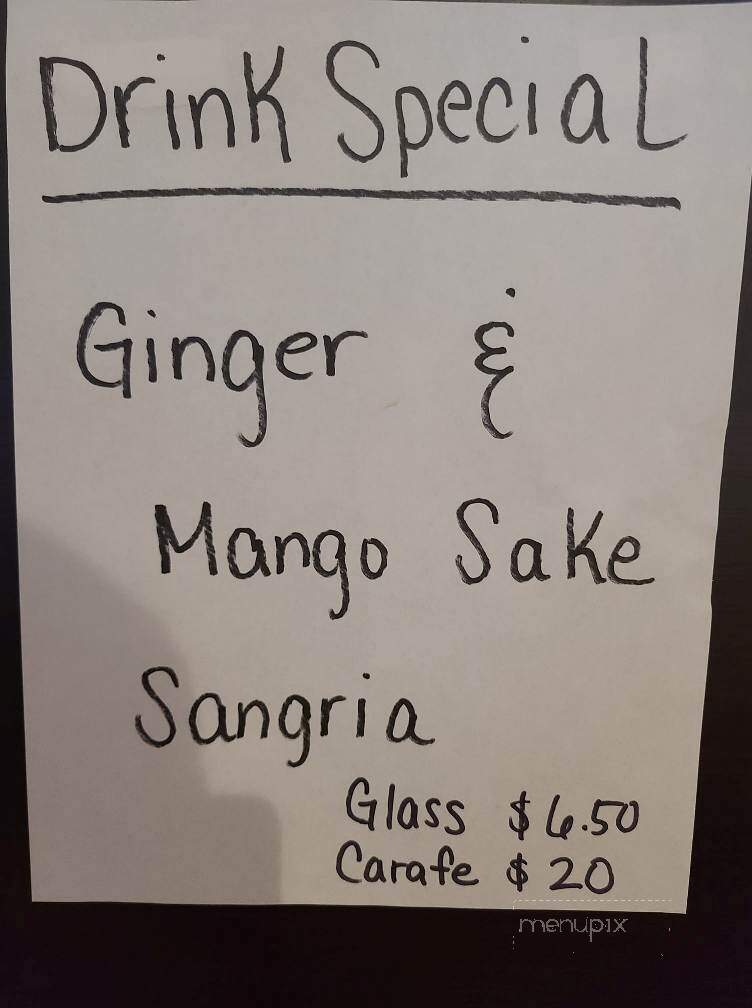 Drink Special
Ginger &
Mango Sake
Sangria
Glass $6.50
Carafe $20
menupix